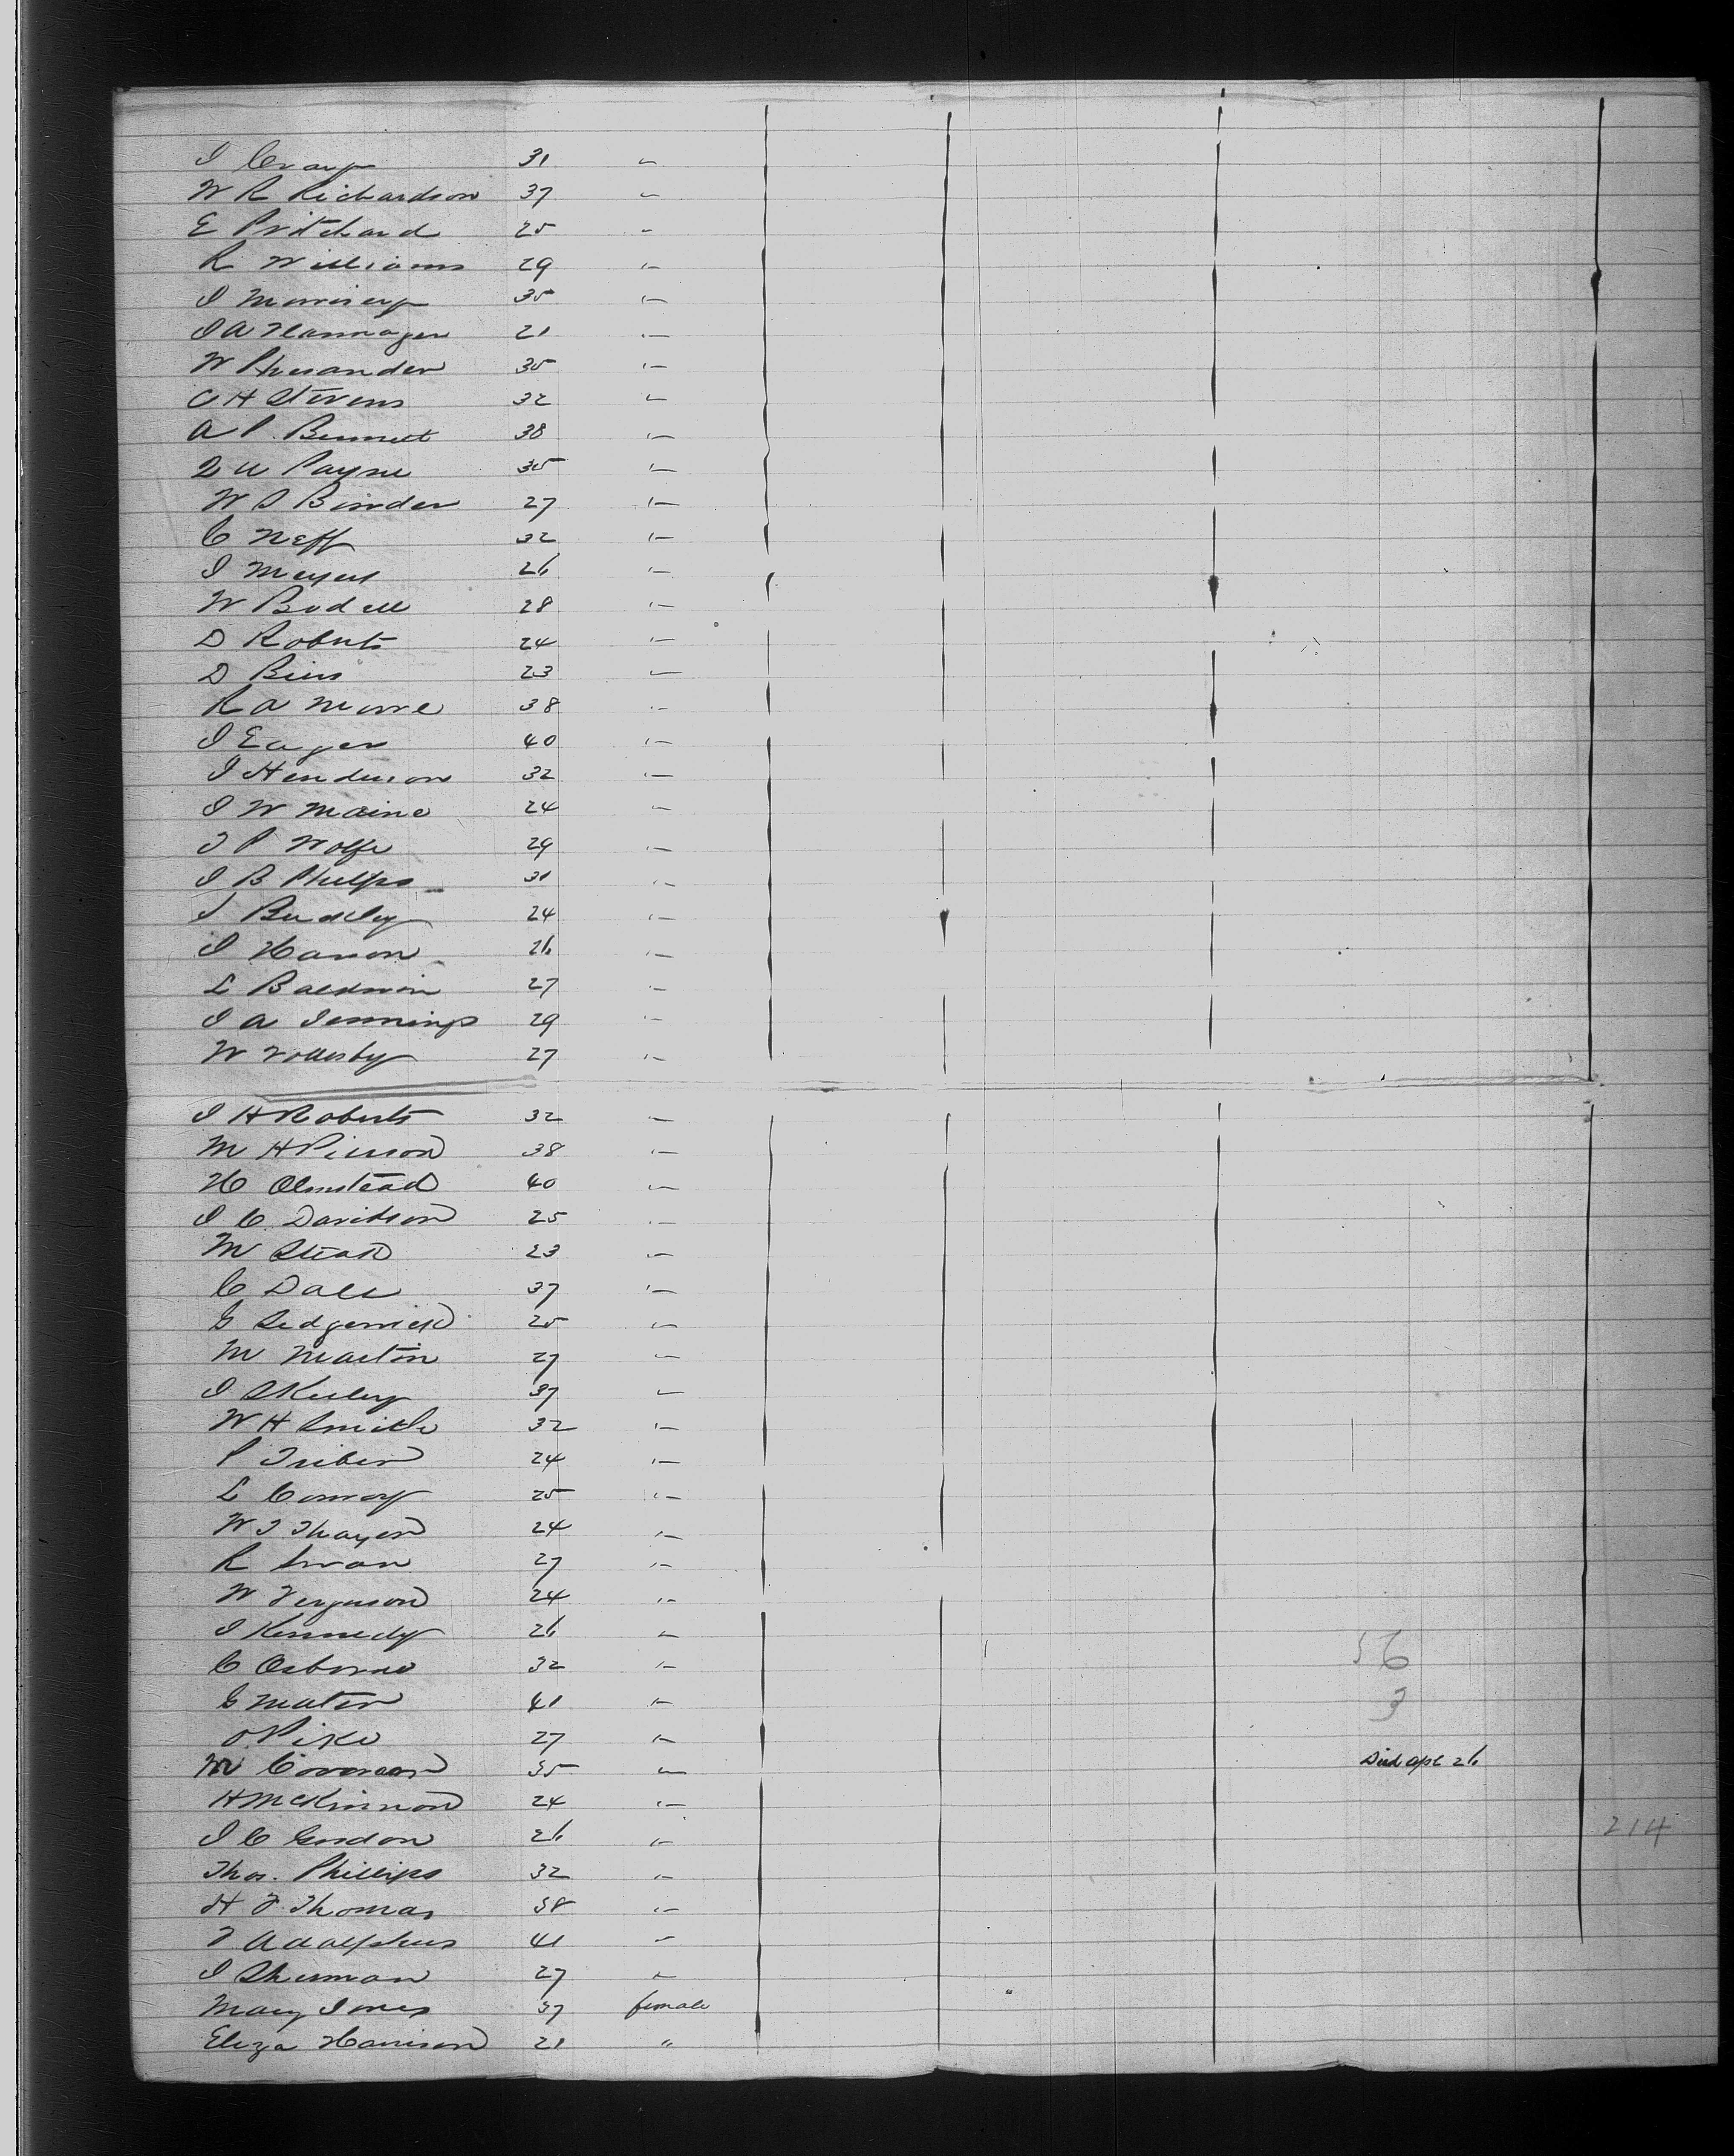 J Craig 31 "
W R Richardson 37 "
E Pritchard 25 "
R Williams 29 "
J Morrisey 35 "
J A 21 "
W 35 "
C H Stevens 32 "
A P. Bennett 38 "
Payne 35 "
W S Binder 27 "
C Neff 32 "
J Meyers 26 "
W Bodell 28 "
D Roberts 24 "
D 23 "
R A Moore 38 "
J Eager 40 "
J Henderson 32 "
J W Maine 24 "
T P Wolfe 29 "
J B Phelps 31 "
J 24 "
J Hanson 26 "
L Baldwin 27 "
J A Jennings 29 "
W 27 "
J H Roberts 32 "
M H Pierson 38 "
H Olmstead 40 "
J C. Davidson 25 "
M 23 "
C Dale 37 "
G Sedgewick 25 "
M Martin 27 "
J Skelley 37 "
W H Smith 32 "
P 24 "
L Conroy 25 "
W T Thayer 24 "
R Swan 27 "
W Ferguson 24 "
J Kennedy 26 "
C Osborne 32 "
56
G 41 "
3
O. Pike 27 "
M 35 " Died Apl 26
H McKinnon 24 "
J C Gordon 26 "
214
Thos. Phillips 32 "
H F. Thomas 38 "
F Adolphus 41 "
J Sherman 27 "
Mary Jones 37 female
Eliza Harrison 21 "